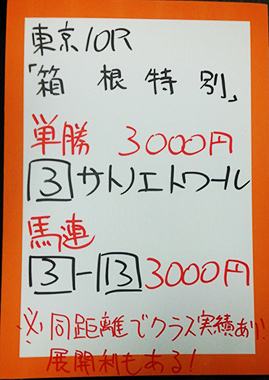 東京10R
「箱根特別」
単勝 3000円
3サトノエトワール
馬連
3-13 3000円
※同距離でクラス実績あり!
展開利もある!